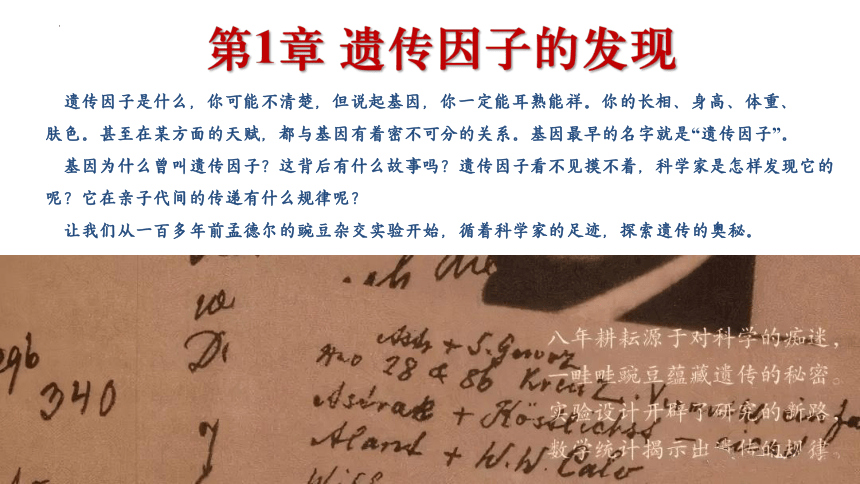 第1章 遗传因子的发现
遗传因子是什么，你可能不清楚，但说起基因，你一定能耳熟能祥。你的长相、身高、体重、
肤色。甚至在某方面的天赋，都与基因有着密不可分的关系。基因最早的名字就是“遗传因子”。
基因为什么曾叫遗传因子？这背后有什么故事吗？遗传因子看不见摸不着，科学家是怎样发现它的
呢？它在亲子代间的传递有什么规律呢？
让我们从一百多年前孟德尔的豌豆杂交实验开始，循着科学家的足迹，探索遗传的奥秘。
八年耕耘源于对科学的痴迷，
一畦畦豌豆蕴藏遗传的秘密。
实验设计开辟了研究的新路，
数学统计揭示出遗传的规律。
340
28 & 86
Aland + W.W. Calo